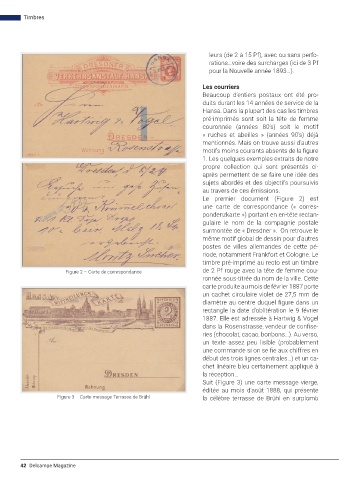 Timbres
DRESDNER
VERKEHRSANSTALT HANSA
Herrn
Hartwig & Vogel
DRESDEN
Wohnung Rosenstraße
Figure 2 – Carte de correspondance
DRESDEN
Wohnung
Figure 3 Carte message Terrasse de Brühl
leurs (de 2 à 15 Pf), avec ou sans perfo-
rations…voire des surcharges (ici de 3 Pf
pour la Nouvelle année 1893…).
Les courriers
Beaucoup d'entiers postaux ont été pro-
duits durant les 14 années de service de la
Hansa. Dans la plupart des cas les timbres
pré-imprimés sont soit la tête de femme
couronnée (années 80's) soit le motif
« ruches et abeilles » (années 90's) déjà
mentionnés. Mais on trouve aussi d'autres
motifs moins courants absents de la figure
1. Les quelques exemples extraits de notre
propre collection qui sont présentés ci-
après permettent de se faire une idée des
sujets abordés et des objectifs poursuivis
au travers de ces émissions.
Le premier document (Figure 2) est
une carte de correspondance (« corres-
ponderzkarte ») portant en en-tête rectan-
gulaire le nom de la compagnie postale
surmontée de « Dresdner ». On retrouve le
même motif global de dessin pour d'autres
postes de villes allemandes de cette pé-
riode, notamment Frankfurt et Cologne. Le
timbre pré-imprimé au recto est un timbre
de 2 Pf rouge avec la tête de femme cou-
ronnée sous-titrée du nom de la ville. Cette
carte produite au mois de février 1887 porte
un cachet circulaire violet de 27,5 mm de
diamètre au centre duquel figure dans un
rectangle la date d'oblitération le 9 février
1887. Elle est adressée à Hartwig & Vogel
dans la Rosenstrasse, vendeur de confise-
ries (chocolat, cacao, bonbons…). Au verso,
un texte assez peu lisible (probablement
une commande si on se fie aux chiffres en
début des trois lignes centrales…) et un ca-
chet linéaire bleu certainement appliqué à
la réception…
Suit (Figure 3) une carte message vierge,
éditée au mois d'août 1888, qui présente
la célèbre terrasse de Brühl en surplomb
42 Delcampe Magazine